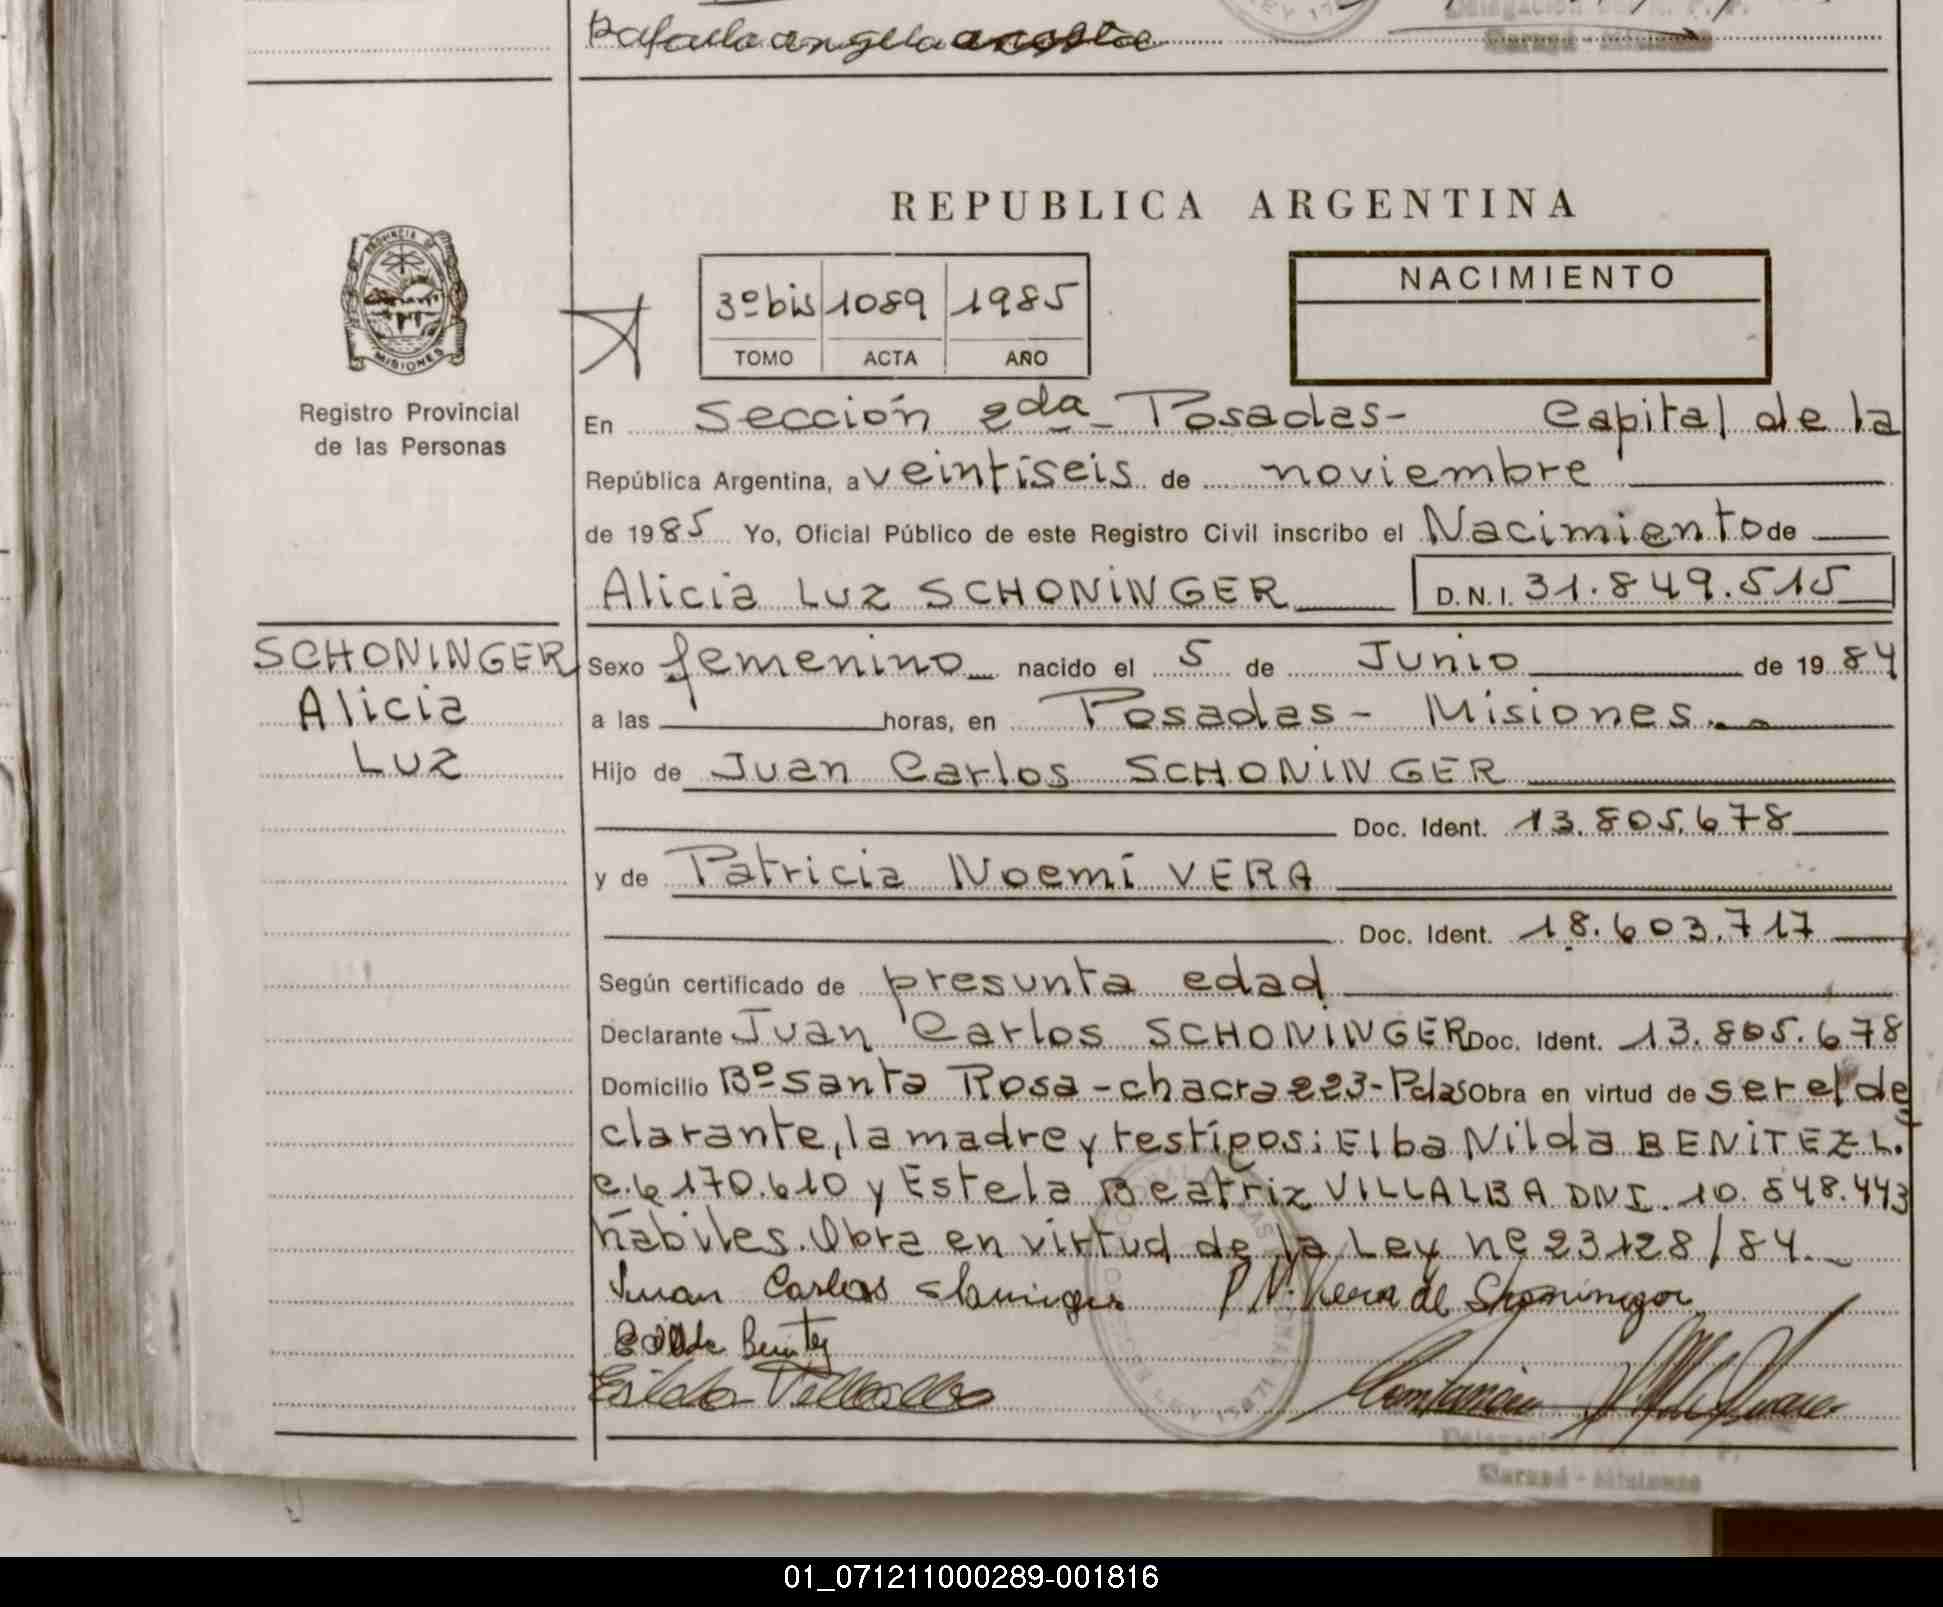 Rafaela angela acosta
REPUBLICA ARGENTINA
PROVINCIA DE
MISIONES
Registro Provincial
de las Personas
3º bis 1089 1985
TOMO ACTA AÑO
NACIMIENTO
En Sección 2da - Posadas - Capital de la
República Argentina, a veintiseis de noviembre
de 1985 Yo, Oficial Público de este Registro Civil inscribo el Nacimiento de
Alicia Luz SCHONINGER D.N.I. 31.849.515
SCHONINGER
Alicia
Luz
Sexo femenino nacido el 5 de Junio de 1984
a las horas, en Posadas - Misiones.
Hijo de Juan Carlos SCHONINGER
Doc. Ident. 13.805.678
y de Patricia Noemí VERA
Doc. Ident. 18.603.717
Según certificado de presunta edad
Declarante Juan Carlos SCHONINGER Doc. Ident. 13.805.678
Domicilio Bº Santa Rosa - chacra 223 - Pdas Obra en virtud de ser el de
clarante, la madre y testigos: Elba Nilda BENITEZ L.
C. 6.170.610 y Estela Beatriz VILLALBA DNI. 10.548.443
hábiles. Obra en virtud de la Ley nº 23128/84.
Juan Carlos P. N. Vera de
Benitez
Villalba
Garupá - Misiones
01_071211000289-001816